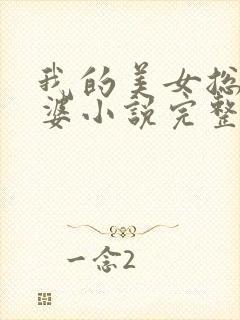 我的美女总
婆小说完整
一念2